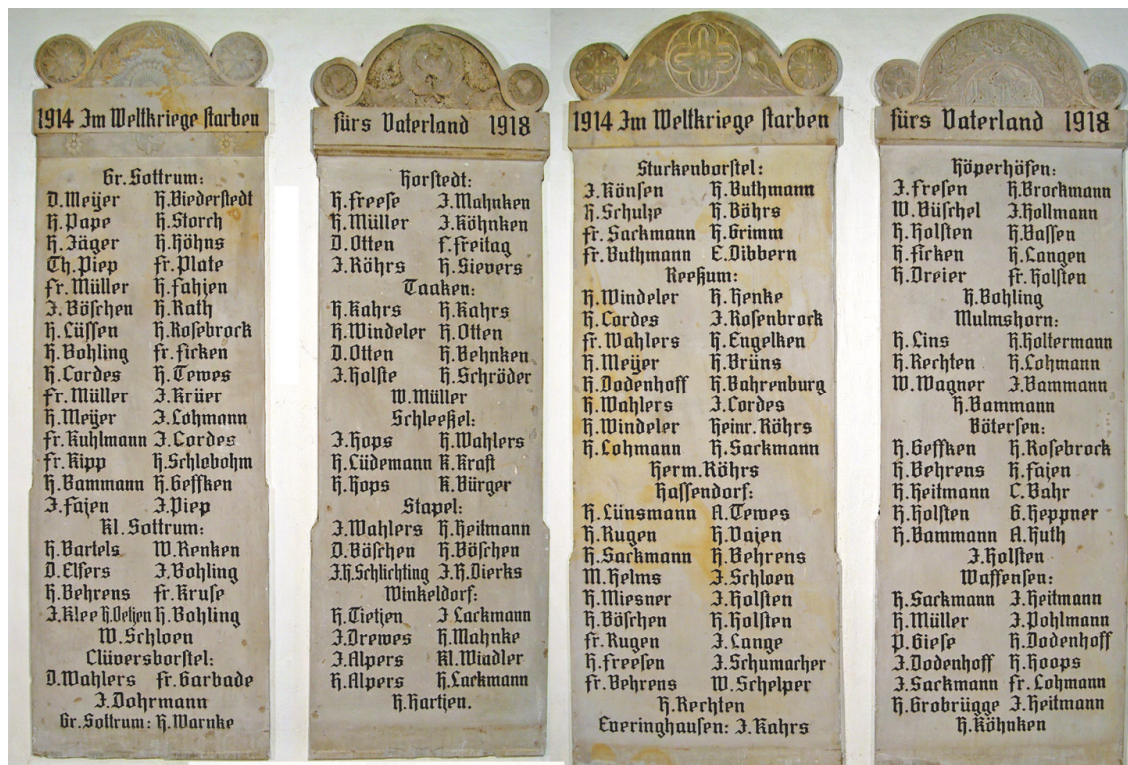 1914 Im Weltkriege starben
Gr. Sottrum:
D. Meyer H. Biederstedt
H. Pape H. Storch
H. Jäger H. Höhns
Th. Piep Fr. Plate
Fr. Müller H. Fahjen
J. Böschen H. Rath
H. Lüssen H. Rosebrock
H. Bohling Fr. Ficken
H. Cordes H. Tewes
Fr. Müller J. Krüer
H. Meyer J. Lohmann
Fr. Kuhlmann J. Cordes
Fr. Kipp H. Schlobohm
H. Bammann H. Geffken
J. Fajen J. Piep
Kl. Sottrum:
H. Bartels W. Renken
D. Elfers J. Bohling
H. Behrens Fr. Kruse
J. Klee H. Oetjen H. Bohling
W. Schloen
Clüversborstel:
D. Wahlers Fr. Garbade
J. Dohrmann
Gr. Sottrum: H. Warnke
fürs Vaterland 1918
Horstedt:
H. Freese J. Mahnken
H. Müller J. Köhnken
D. Otten F. Freitag
J. Röhrs H. Sievers
Taaken:
H. Kahrs H. Kahrs
H. Windeler H. Otten
D. Otten H. Behnken
J. Holste H. Schröder
W. Müller
Schleeßel:
J. Hops H. Wahlers
H. Lüdemann K. Kraft
H. Hops K. Bürger
Stapel:
J. Wahlers H. Heitmann
D. Böschen H. Böschen
J. H. Schlichting J. H. Dierks
Winkeldorf:
H. Tietjen J. Lackmann
J. Drewes H. Mahnke
J. Alpers Kl. Wiadler
H. Alpers H. Lackmann
H. Hartjen.
1914 Im Weltkriege starben
Sturkenborstel:
J. Könsen H. Buthmann
H. Schulze H. Böhrs
Fr. Sackmann H. Grimm
Fr. Buthmann E. Dibbern
Reeßum:
H. Windeler H. Henke
H. Cordes J. Rosenbrock
Fr. Wahlers H. Engelken
H. Meyer H. Brüns
H. Dodenhoff H. Bahrenburg
H. Wahlers J. Cordes
H. Windeler Heinr. Röhrs
H. Lohmann H. Sackmann
Herm. Röhrs
Hassendorf:
H. Lünsmann A. Tewes
H. Rugen H. Vajen
H. Sackmann H. Behrens
M. Helms J. Schloen
H. Miesner J. Holsten
H. Böschen H. Holsten
Fr. Rugen J. Lange
H. Freesen J. Schumacher
Fr. Behrens W. Schelper
H. Rechten
Everinghausen: J. Kahrs
fürs Vaterland 1918
Höperhöfen:
J. Fresen H. Brockmann
W. Büschel J. Hollmann
H. Holsten H. Bassen
H. Ficken H. Langen
H. Dreier Fr. Holsten
H. Bohling
Mulmshorn:
H. Lins H. Holtermann
H. Rechten H. Lohmann
W. Wagner J. Bammann
H. Bammann
Bötersen:
H. Geffken H. Rosebrock
H. Behrens H. Fajen
H. Heitmann C. Bahr
H. Holsten G. Heppner
H. Bammann A. Huth
J. Holsten
Waffensen:
H. Sackmann J. Heitmann
H. Müller J. Pohlmann
P. Giese H. Dodenhoff
J. Dodenhoff H. Hoops
J. Sackmann Fr. Lohmann
H. Grobrügge J. Heitmann
H. Köhnken